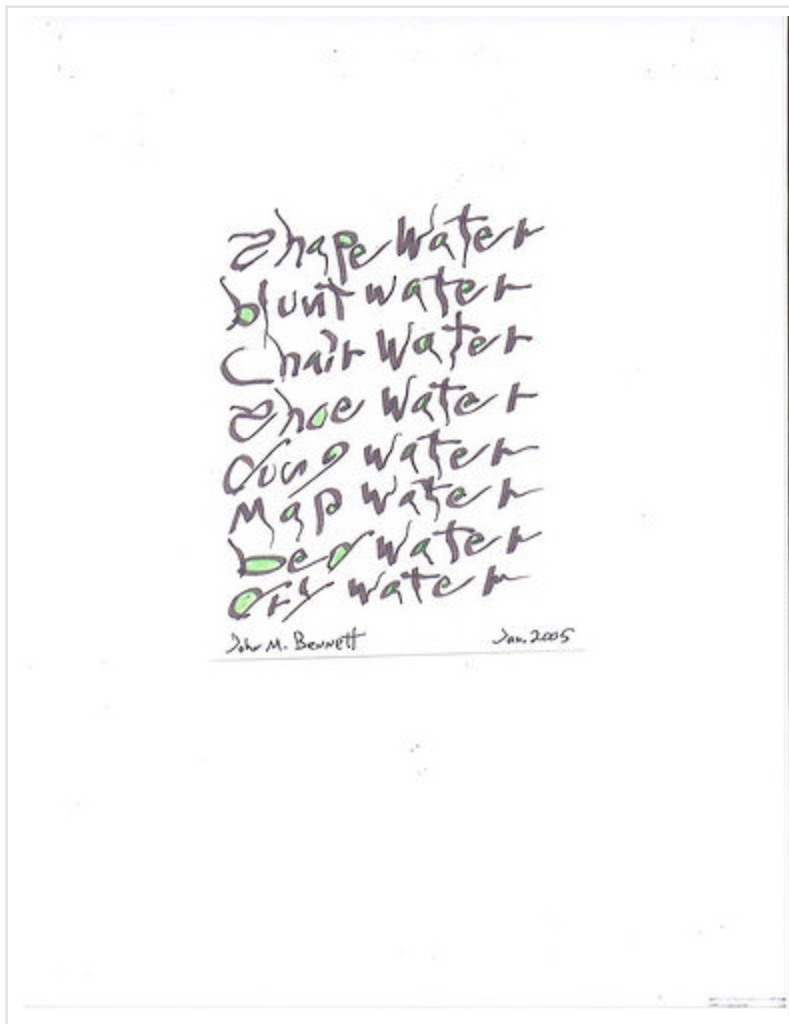 Shape Water
blunt water
Chair Water
Shoe Water
dung water
Map Water
bed water
dry water
John M. Bennett Jan. 2005